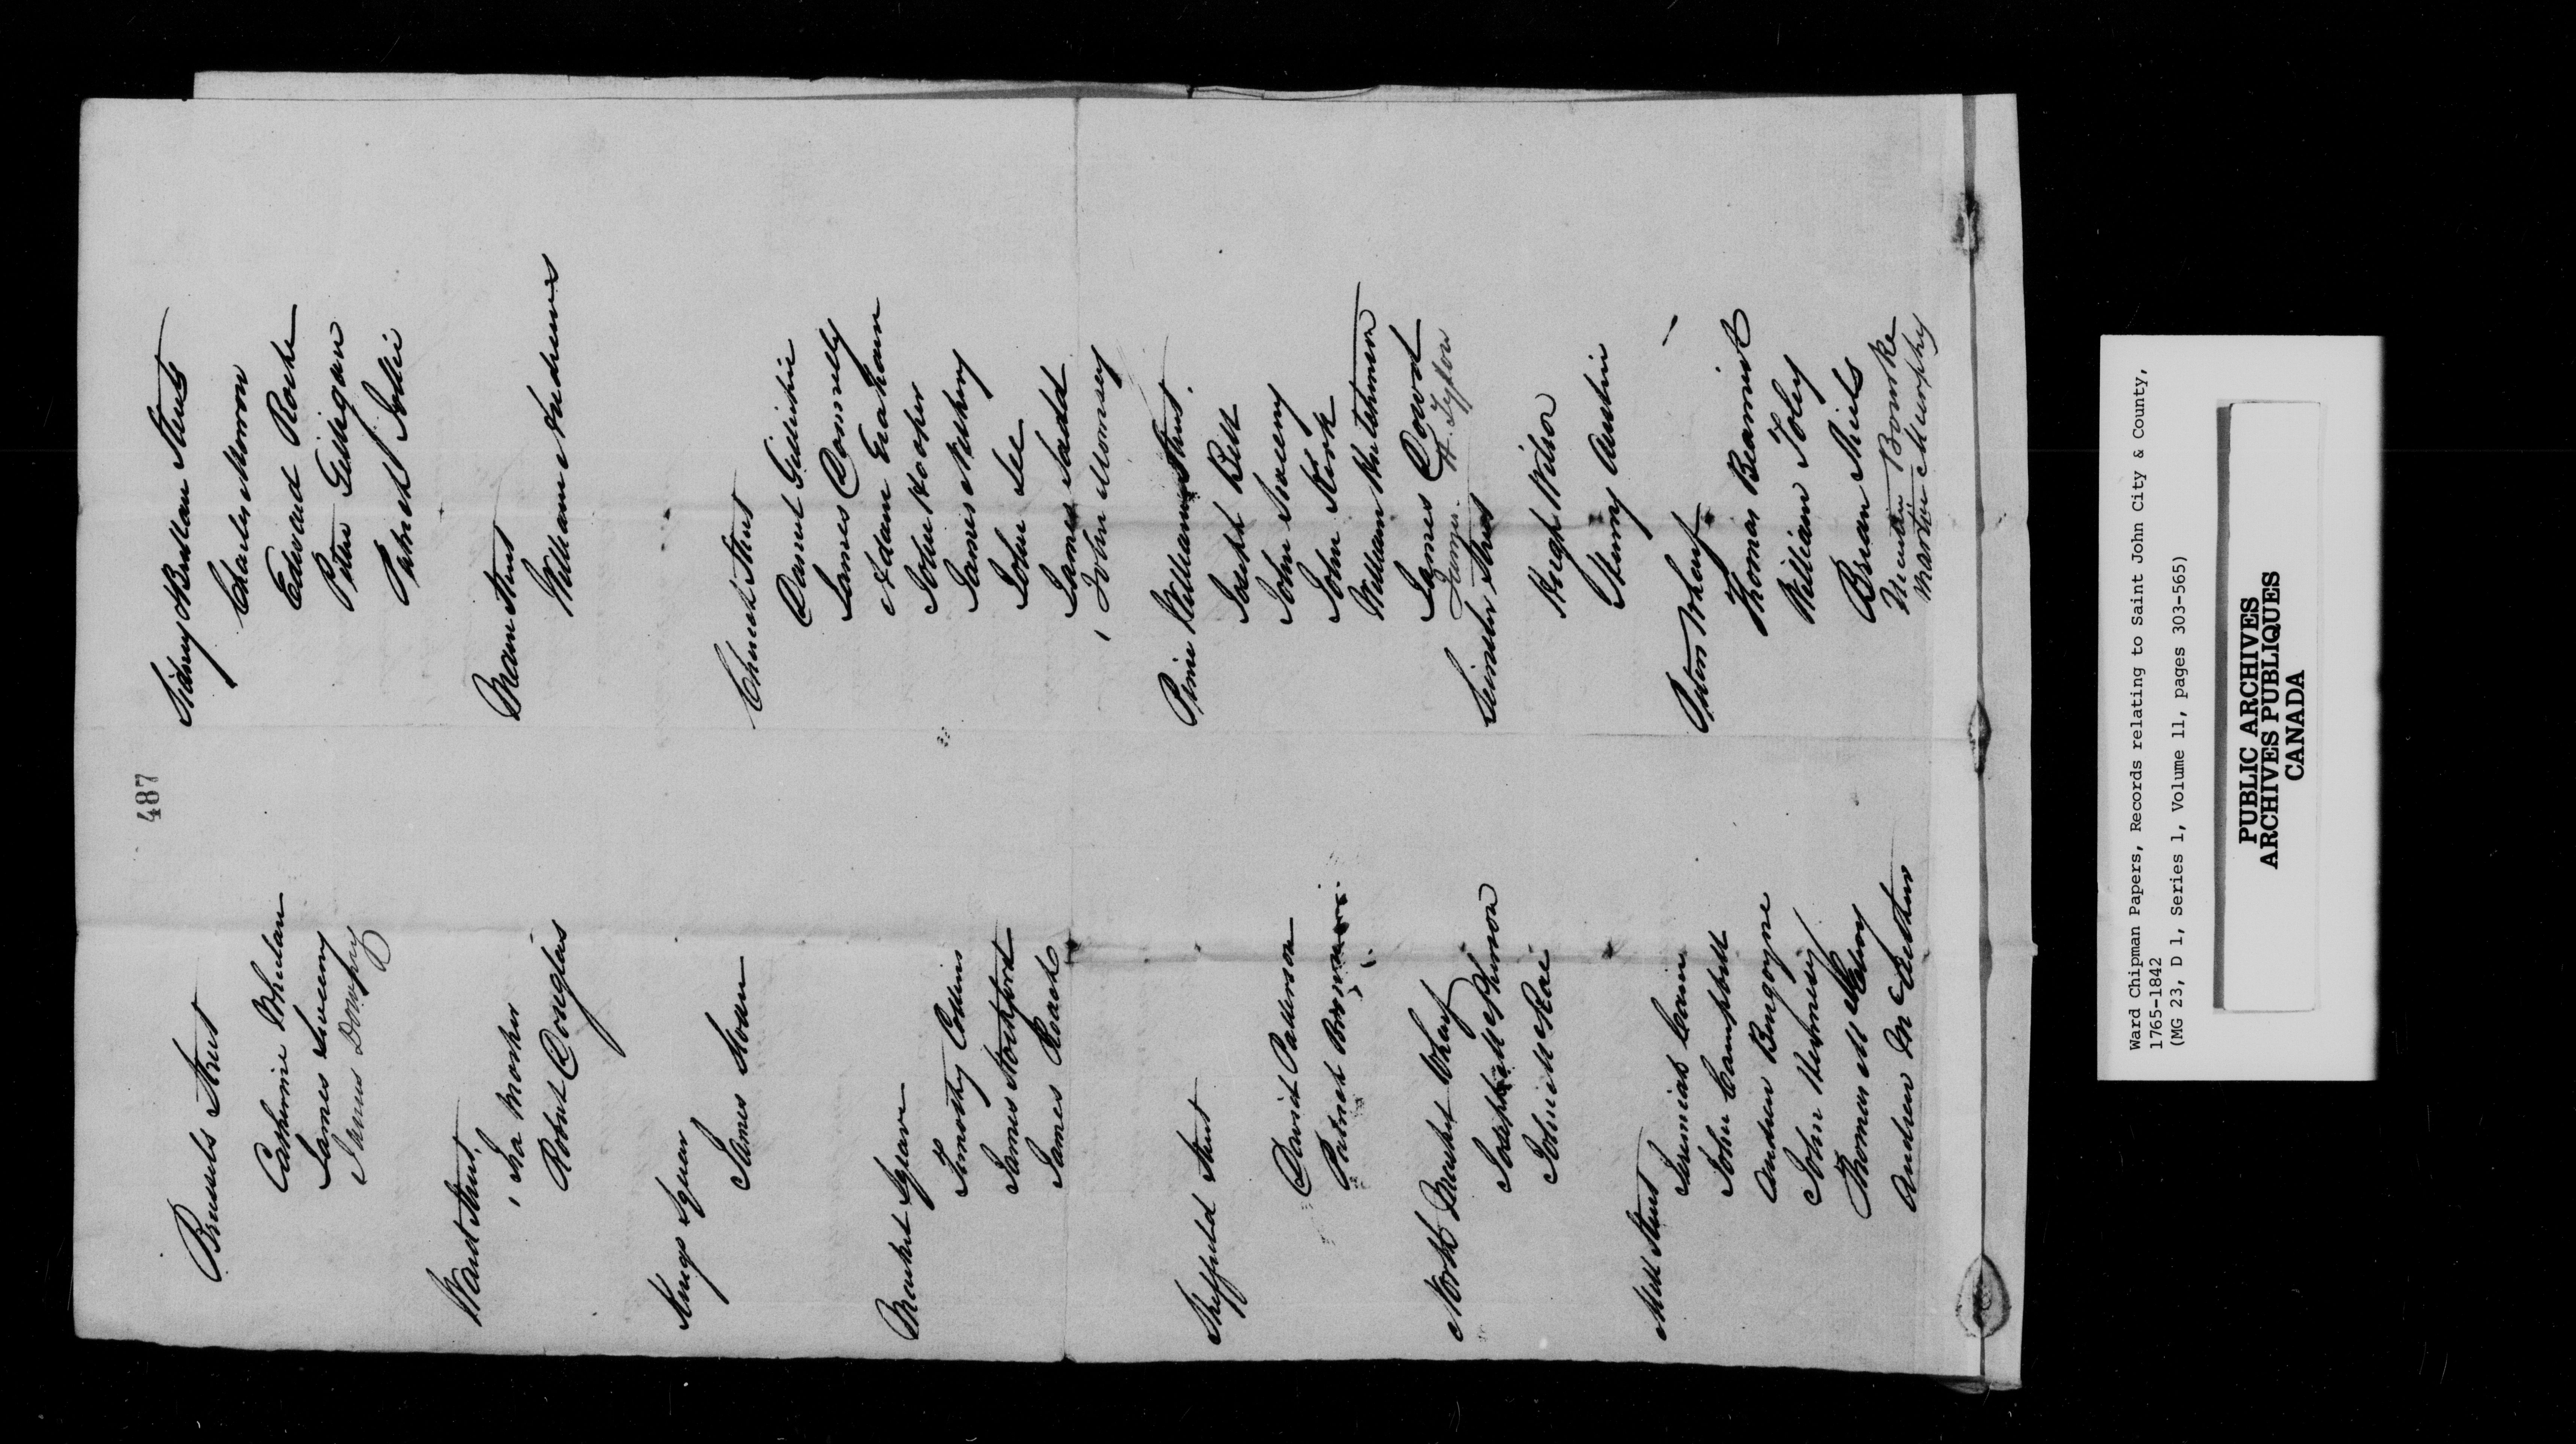 487
Brussels Street
Catherine Whelan
James Sweeny
James Dunphy
Ward Street,
Ira Mosher
Robert Douglas
Kings Square
James Moran
Market Square
Timothy Collins
James Stockford
James Roach
Sheffield Street
David Patterson
Patrick
North Market Wharf
Joseph McPherson
John McRae
Mill Street
Jeremiah Cain
John Campbell
Andrew Burgoyne
John Hennesy
Thomas McElroy
Andrew McArthur
Sidney & Brittain Streets
Charles Morrow
Edward Roche
Peter Gilligan
Patrick
Main Street
William Andrews
Church Street
Daniel
James Connelly
Adam Graham
John Hooper
James
John Lee
James Ladd
John Morrisey
Prince William Street.
Joseph Bell
John Sweeny
John Kirk
William Hutchinson
James Dowd
James
Leinster Street
Hugh Wilson
Henry Austin
Peters Wharf
Thomas Beamish
William Foley
Brian Shiels
Bourke
Martin Murphy
Ward Chipman Papers, Records relating to Saint John City & County,
1765-1842
(MG 23, D 1, Series 1, Volume 11, pages 303-565)
PUBLIC ARCHIVES
ARCHIVES PUBLIQUES
CANADA